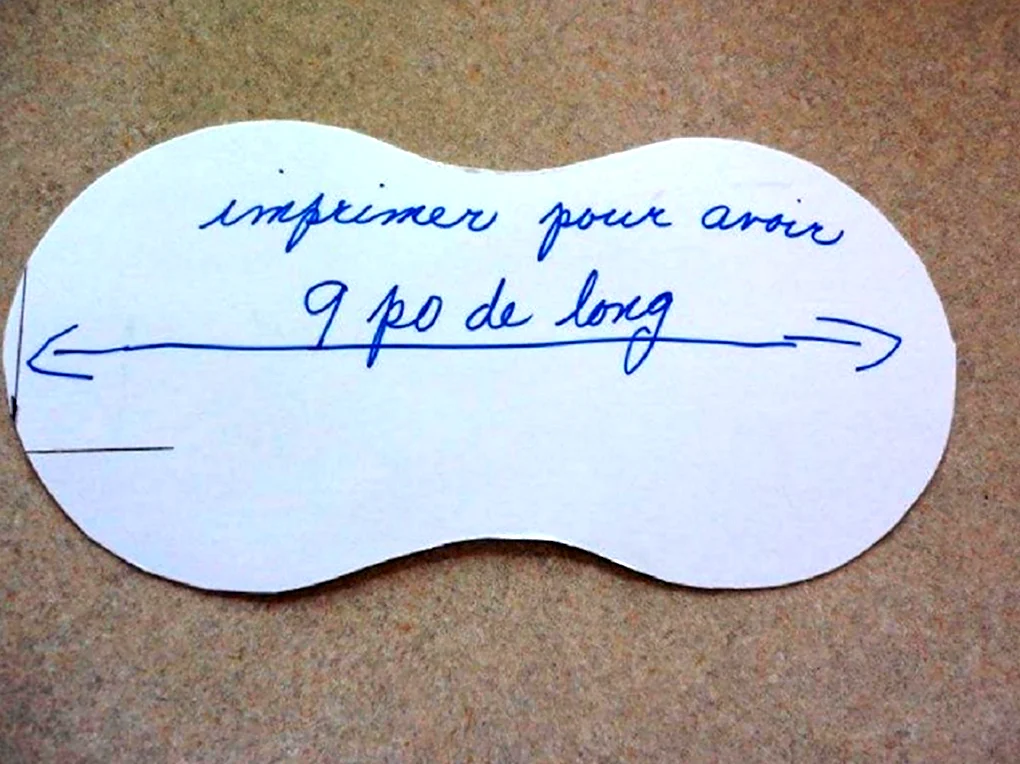 imprimer pour avoir
9 po de long